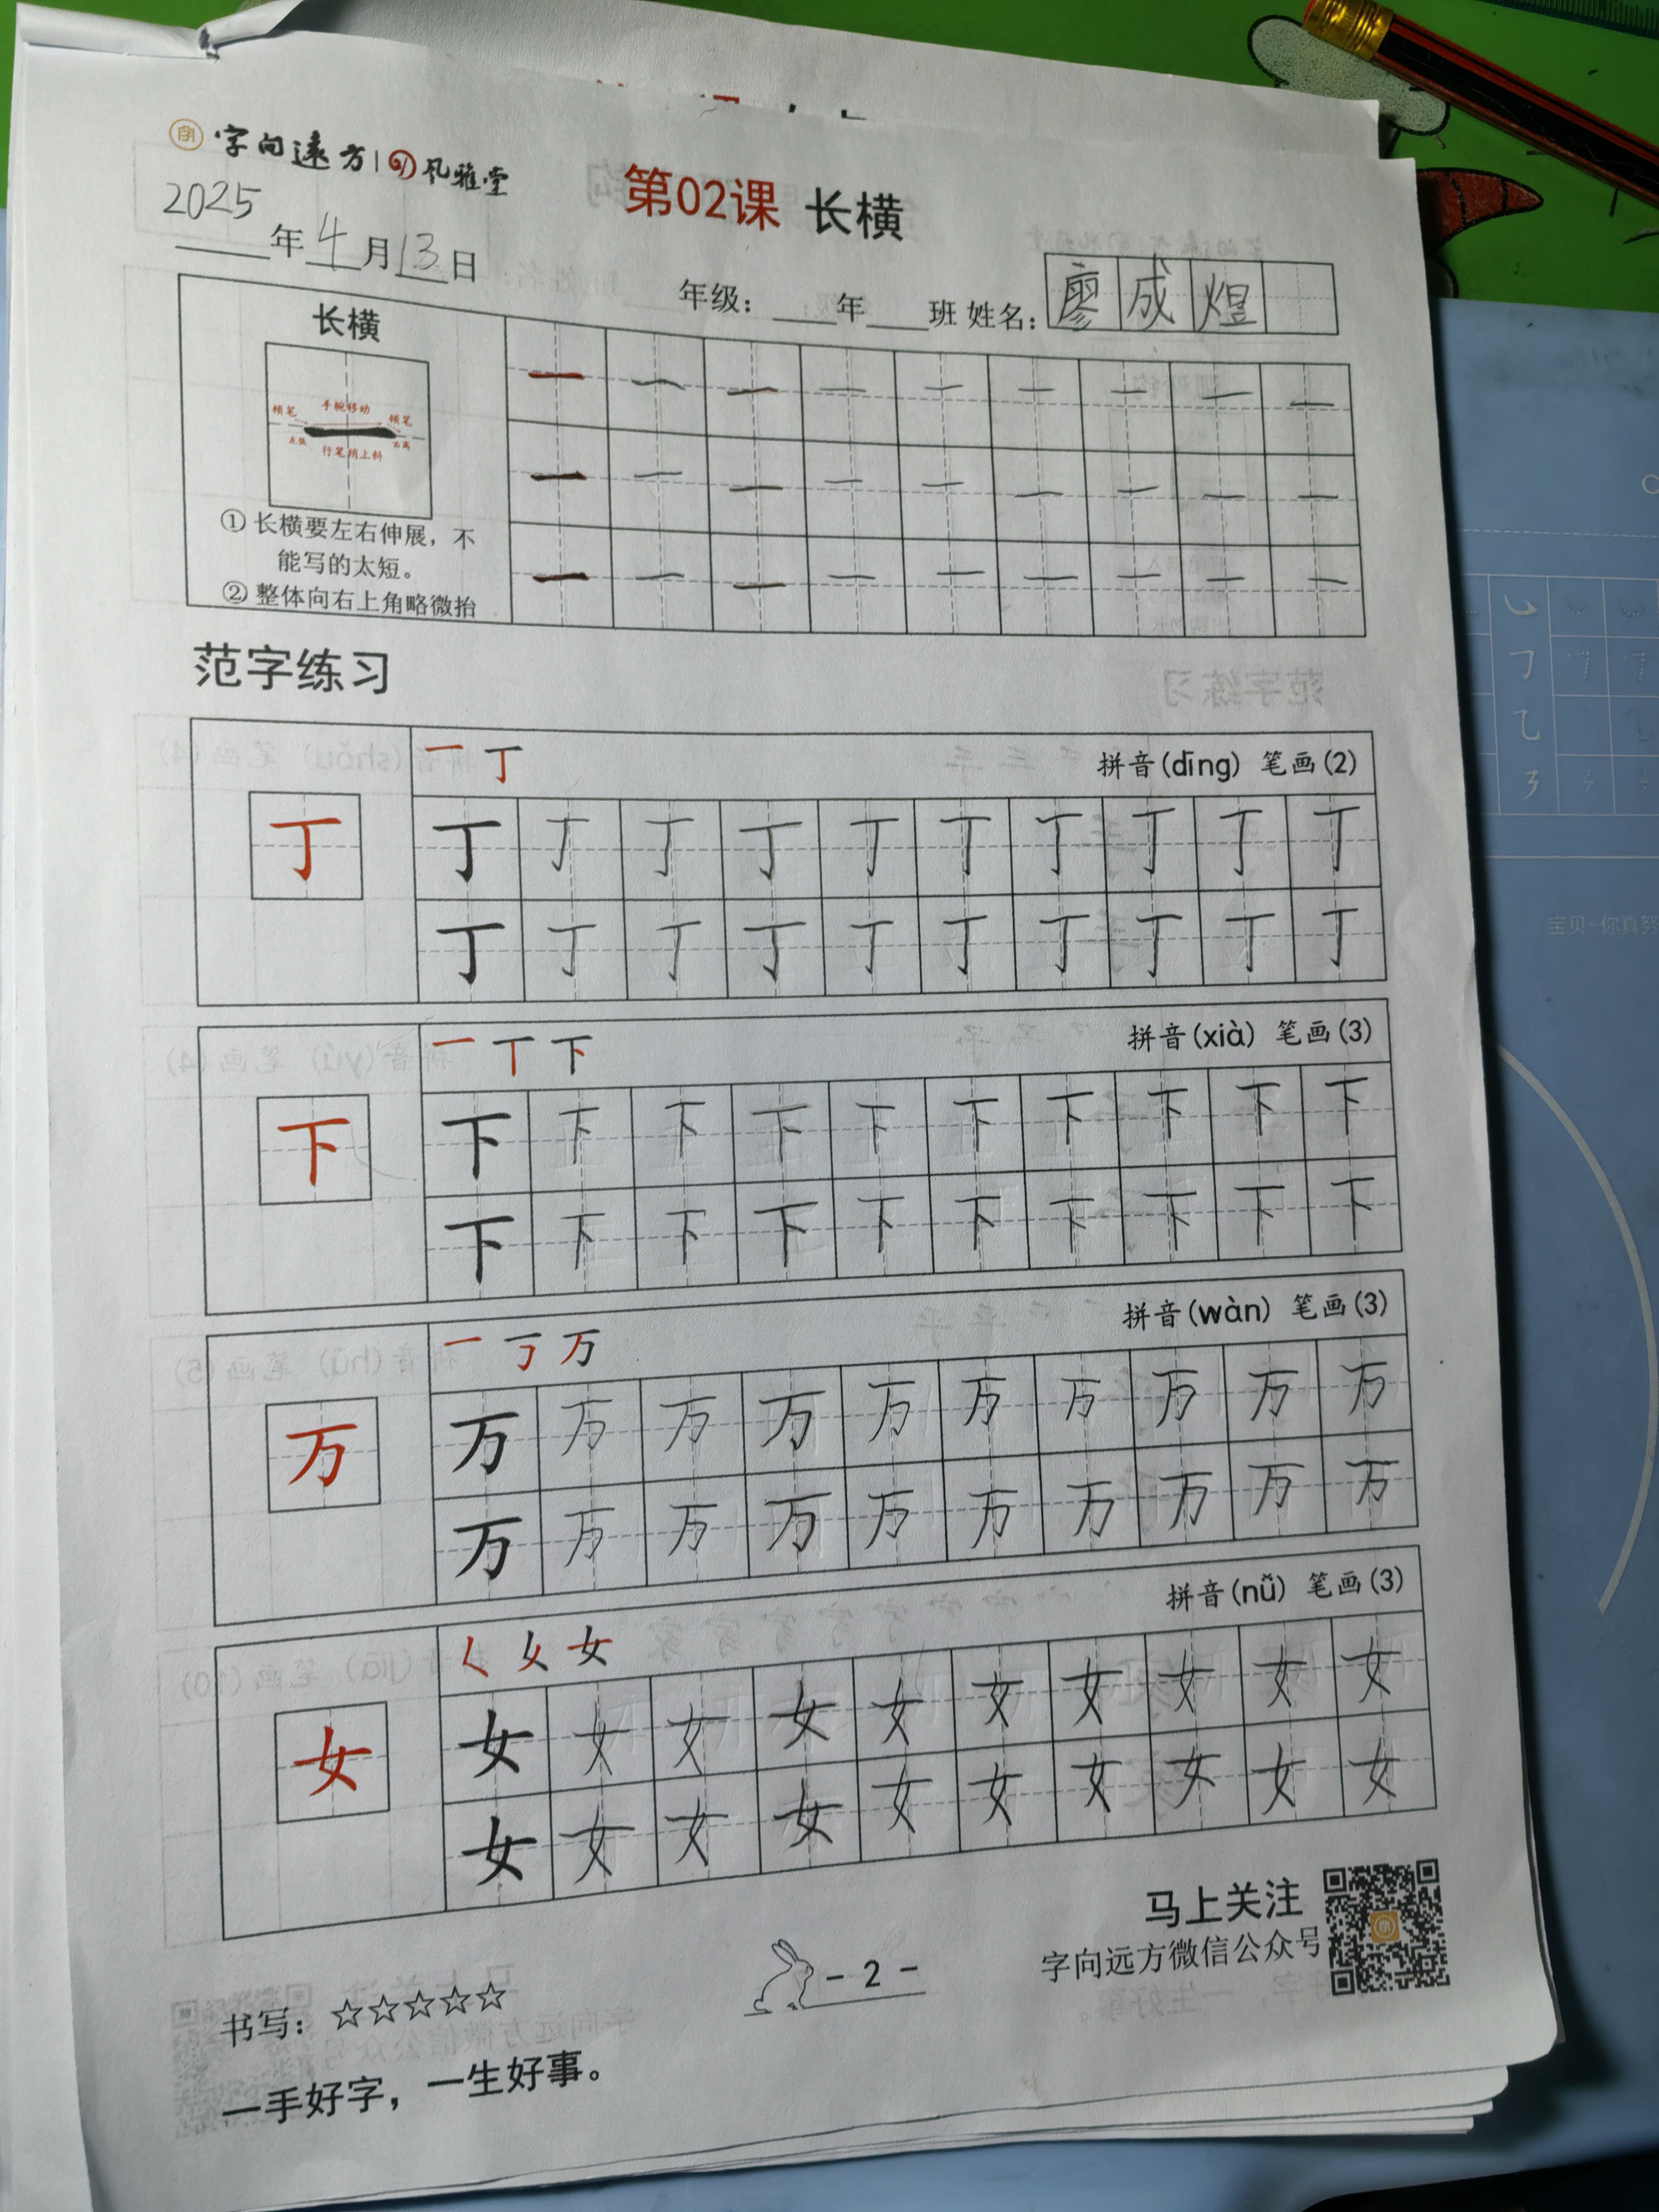 字向远方 风雅堂
第02课 长横
2025年4月13日
年级：____年____班 姓名：廖成煜
长横
顿笔 手腕移动 顿笔
行笔稍上斜
① 长横要左右伸展，不
能写的太短。
② 整体向右上角略微抬
一 一 一 一 一 一 一 一 一
一 一 一 一 一 一 一 一 一
一 一 一 一 一 一 一 一 一
范字练习
一 丁 拼音(dīng) 笔画(2)
丁
丁 丁 丁 丁 丁 丁 丁 丁 丁 丁
丁 丁 丁 丁 丁 丁 丁 丁 丁 丁
一 丅 下 拼音(xià) 笔画(3)
下
下 下 下 下 下 下 下 下 下 下
下 下 下 下 下 下 下 下 下 下
一 丂 万 拼音(wàn) 笔画(3)
万
万 万 万 万 万 万 万 万 万 万
万 万 万 万 万 万 万 万 万 万
𡿨 女 女 拼音(nǚ) 笔画(3)
女
女 女 女 女 女 女 女 女 女 女
女 女 女 女 女 女 女 女 女 女
马上关注
字向远方微信公众号
- 2 -
书写：☆☆☆☆☆
一手好字，一生好事。
宝贝~你真努